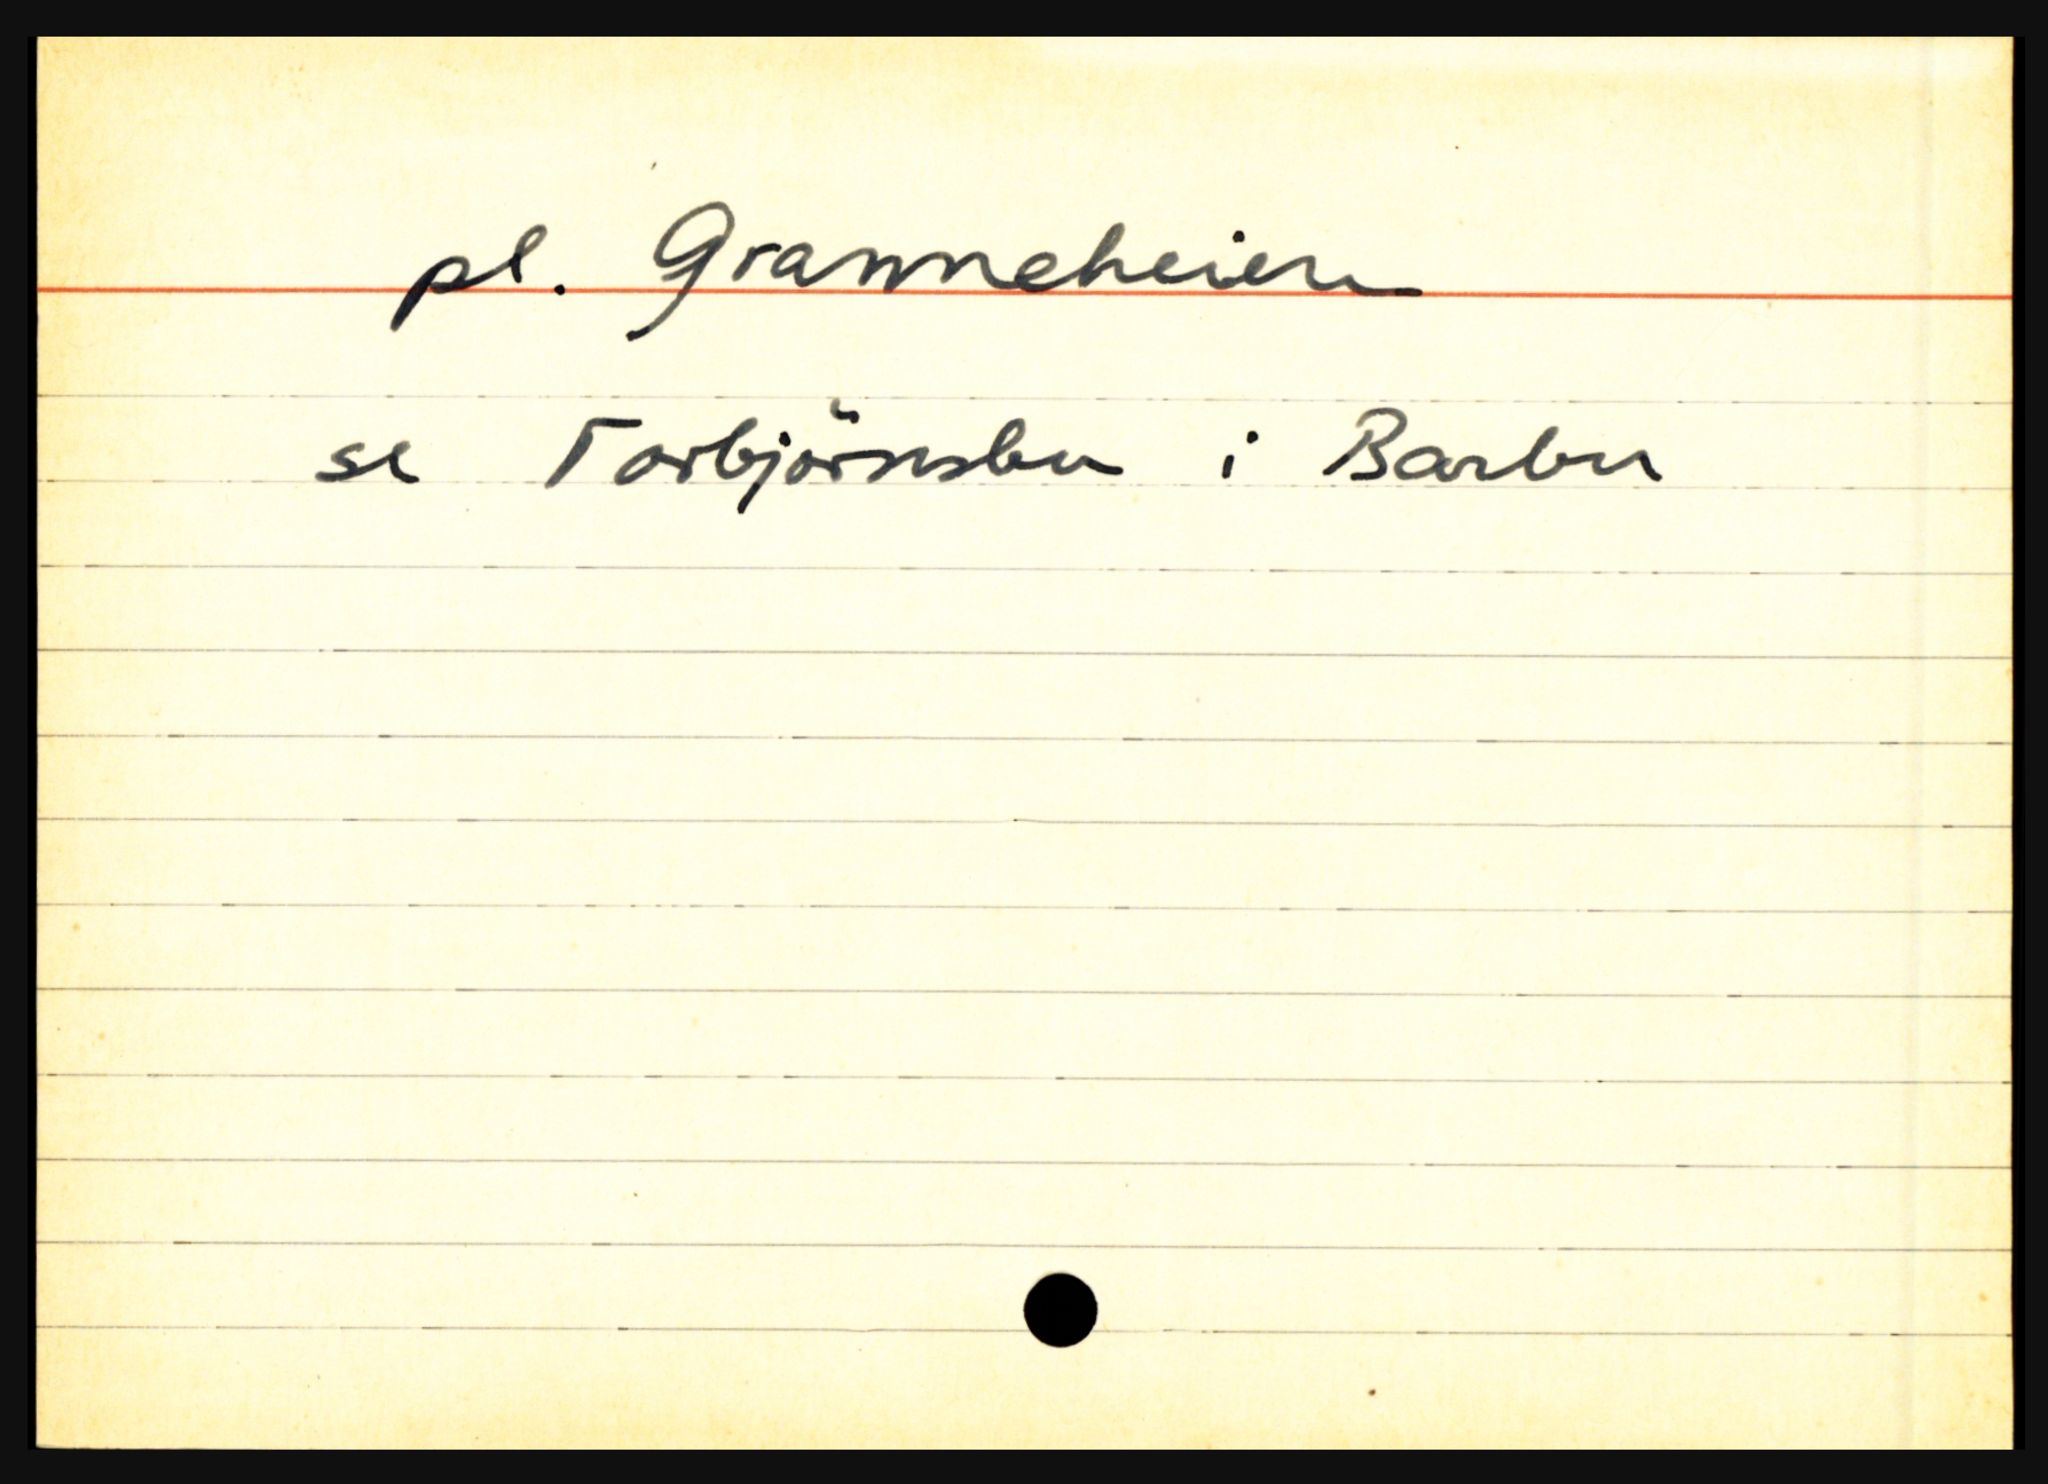 pl. Granneheien
se Torbjörnsbu i Barbu